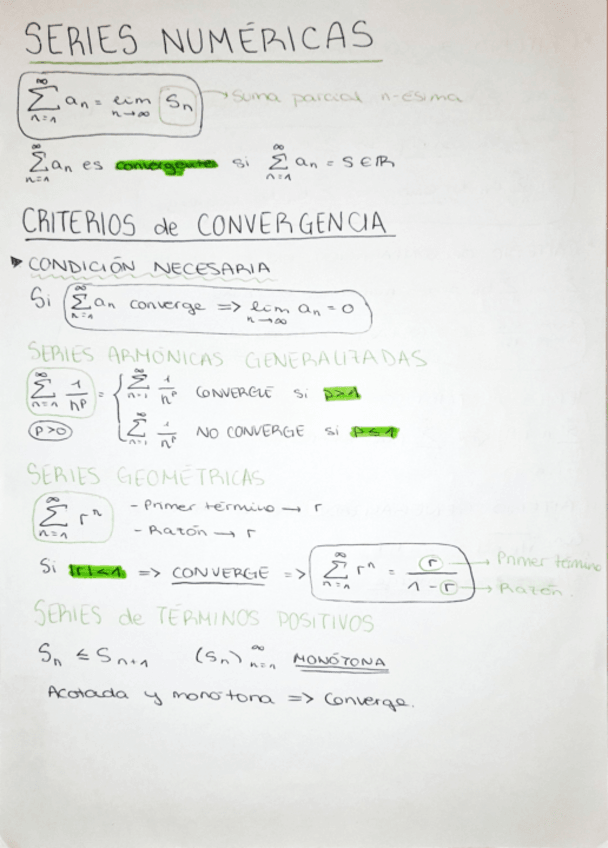 SERIES NUMÉRICAS
∞∑n=1 an = lim n→∞ Sn → Suma parcial n-ésima
∞∑n=1 an es convergente si ∞∑n=1 an = S ∈ ℝ
CRITERIOS de CONVERGENCIA
▶ CONDICIÓN NECESARIA
Si ∞∑n=1 an converge => lim n→∞ an = 0
SERIES ARMÓNICAS GENERALIZADAS
∞∑n=1 1/n^p = { ∞∑n=1 1/n^p CONVERGE si p>1
p>0 ∞∑n=1 1/n^p NO CONVERGE si p≤1
SERIES GEOMÉTRICAS
∞∑n=1 r^n - Primer término → r
- Razón → r
Si |r|<1 => CONVERGE => ∞∑n=1 r^n = r/(1-r) → Primer término
→ Razón.
SERIES de TÉRMINOS POSITIVOS
Sn ≤ Sn+1 (Sn)∞n=1 MONÓTONA
Acotada y monótona => Converge.